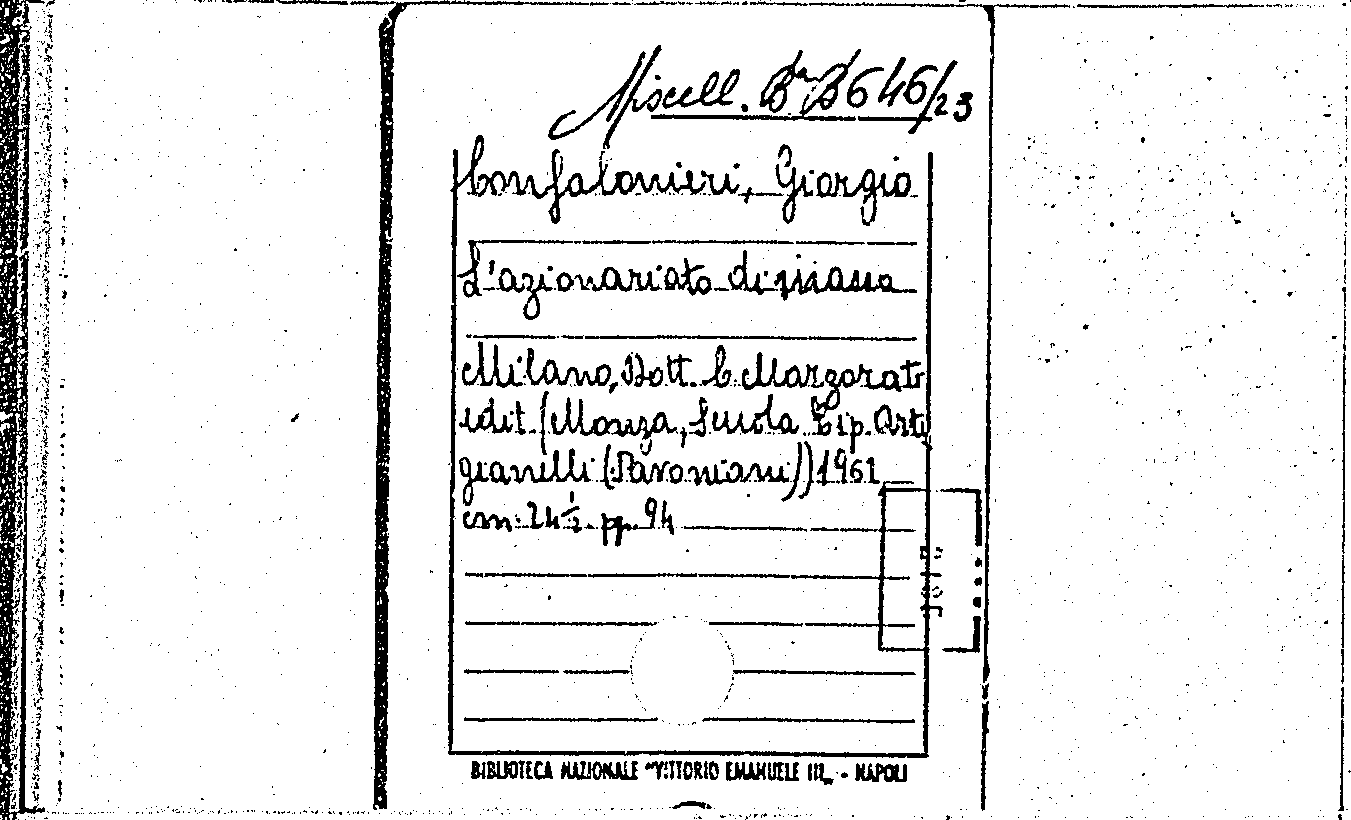 Miscell. Ba B 646/23
Confalonieri, Giorgio
L'azionariato di massa
Milano, Dott. C. Marzorati
edit. (Monza, Scuola Tip. Arti
gianelli (Pavoniani)) 1961
cm. 24½. pp. 94
BIBLIOTECA NAZIONALE "VITTORIO EMANUELE III„ - NAPOLI